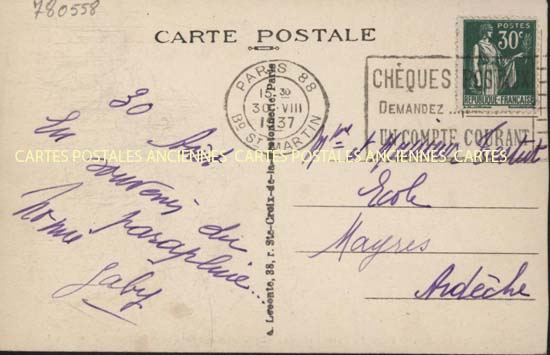 780558
CARTE POSTALE
30 Août
En souvenir du
parapluie...
Gaby
PARIS 88
15 30
30 VIII
1937
Bd ST MARTIN
CHÈQUES POSTAUX
DEMANDEZ
UN COMPTE COURANT
30c
POSTES
REPUBLIQUE FRANÇAISE
CARTES POSTALES ANCIENNES CARTES POSTALES ANCIENNES CARTES POSTALES ANCIENNES
Ecole
Mayres
Ardèche
38, r. Ste-Croix-de-la-Bretonnerie, Paris